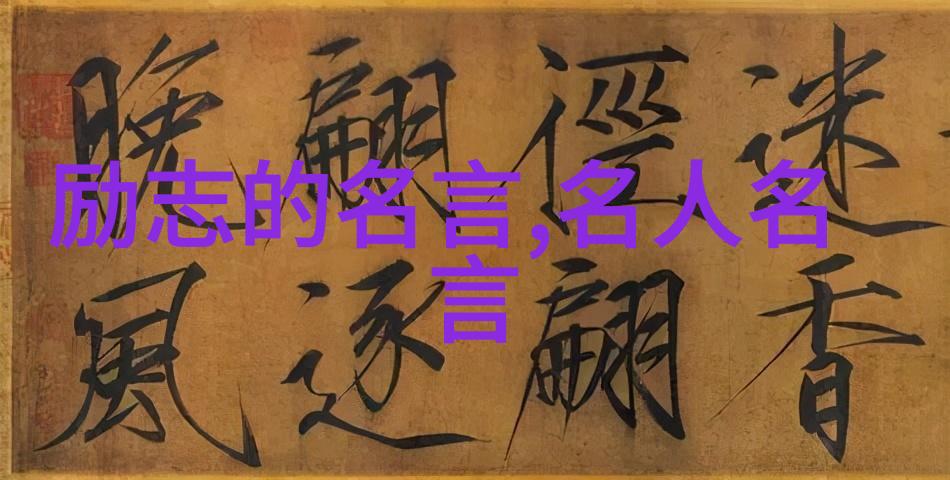 励志的名言,名人名
言
迷香
徑翩
翩逐
晚風